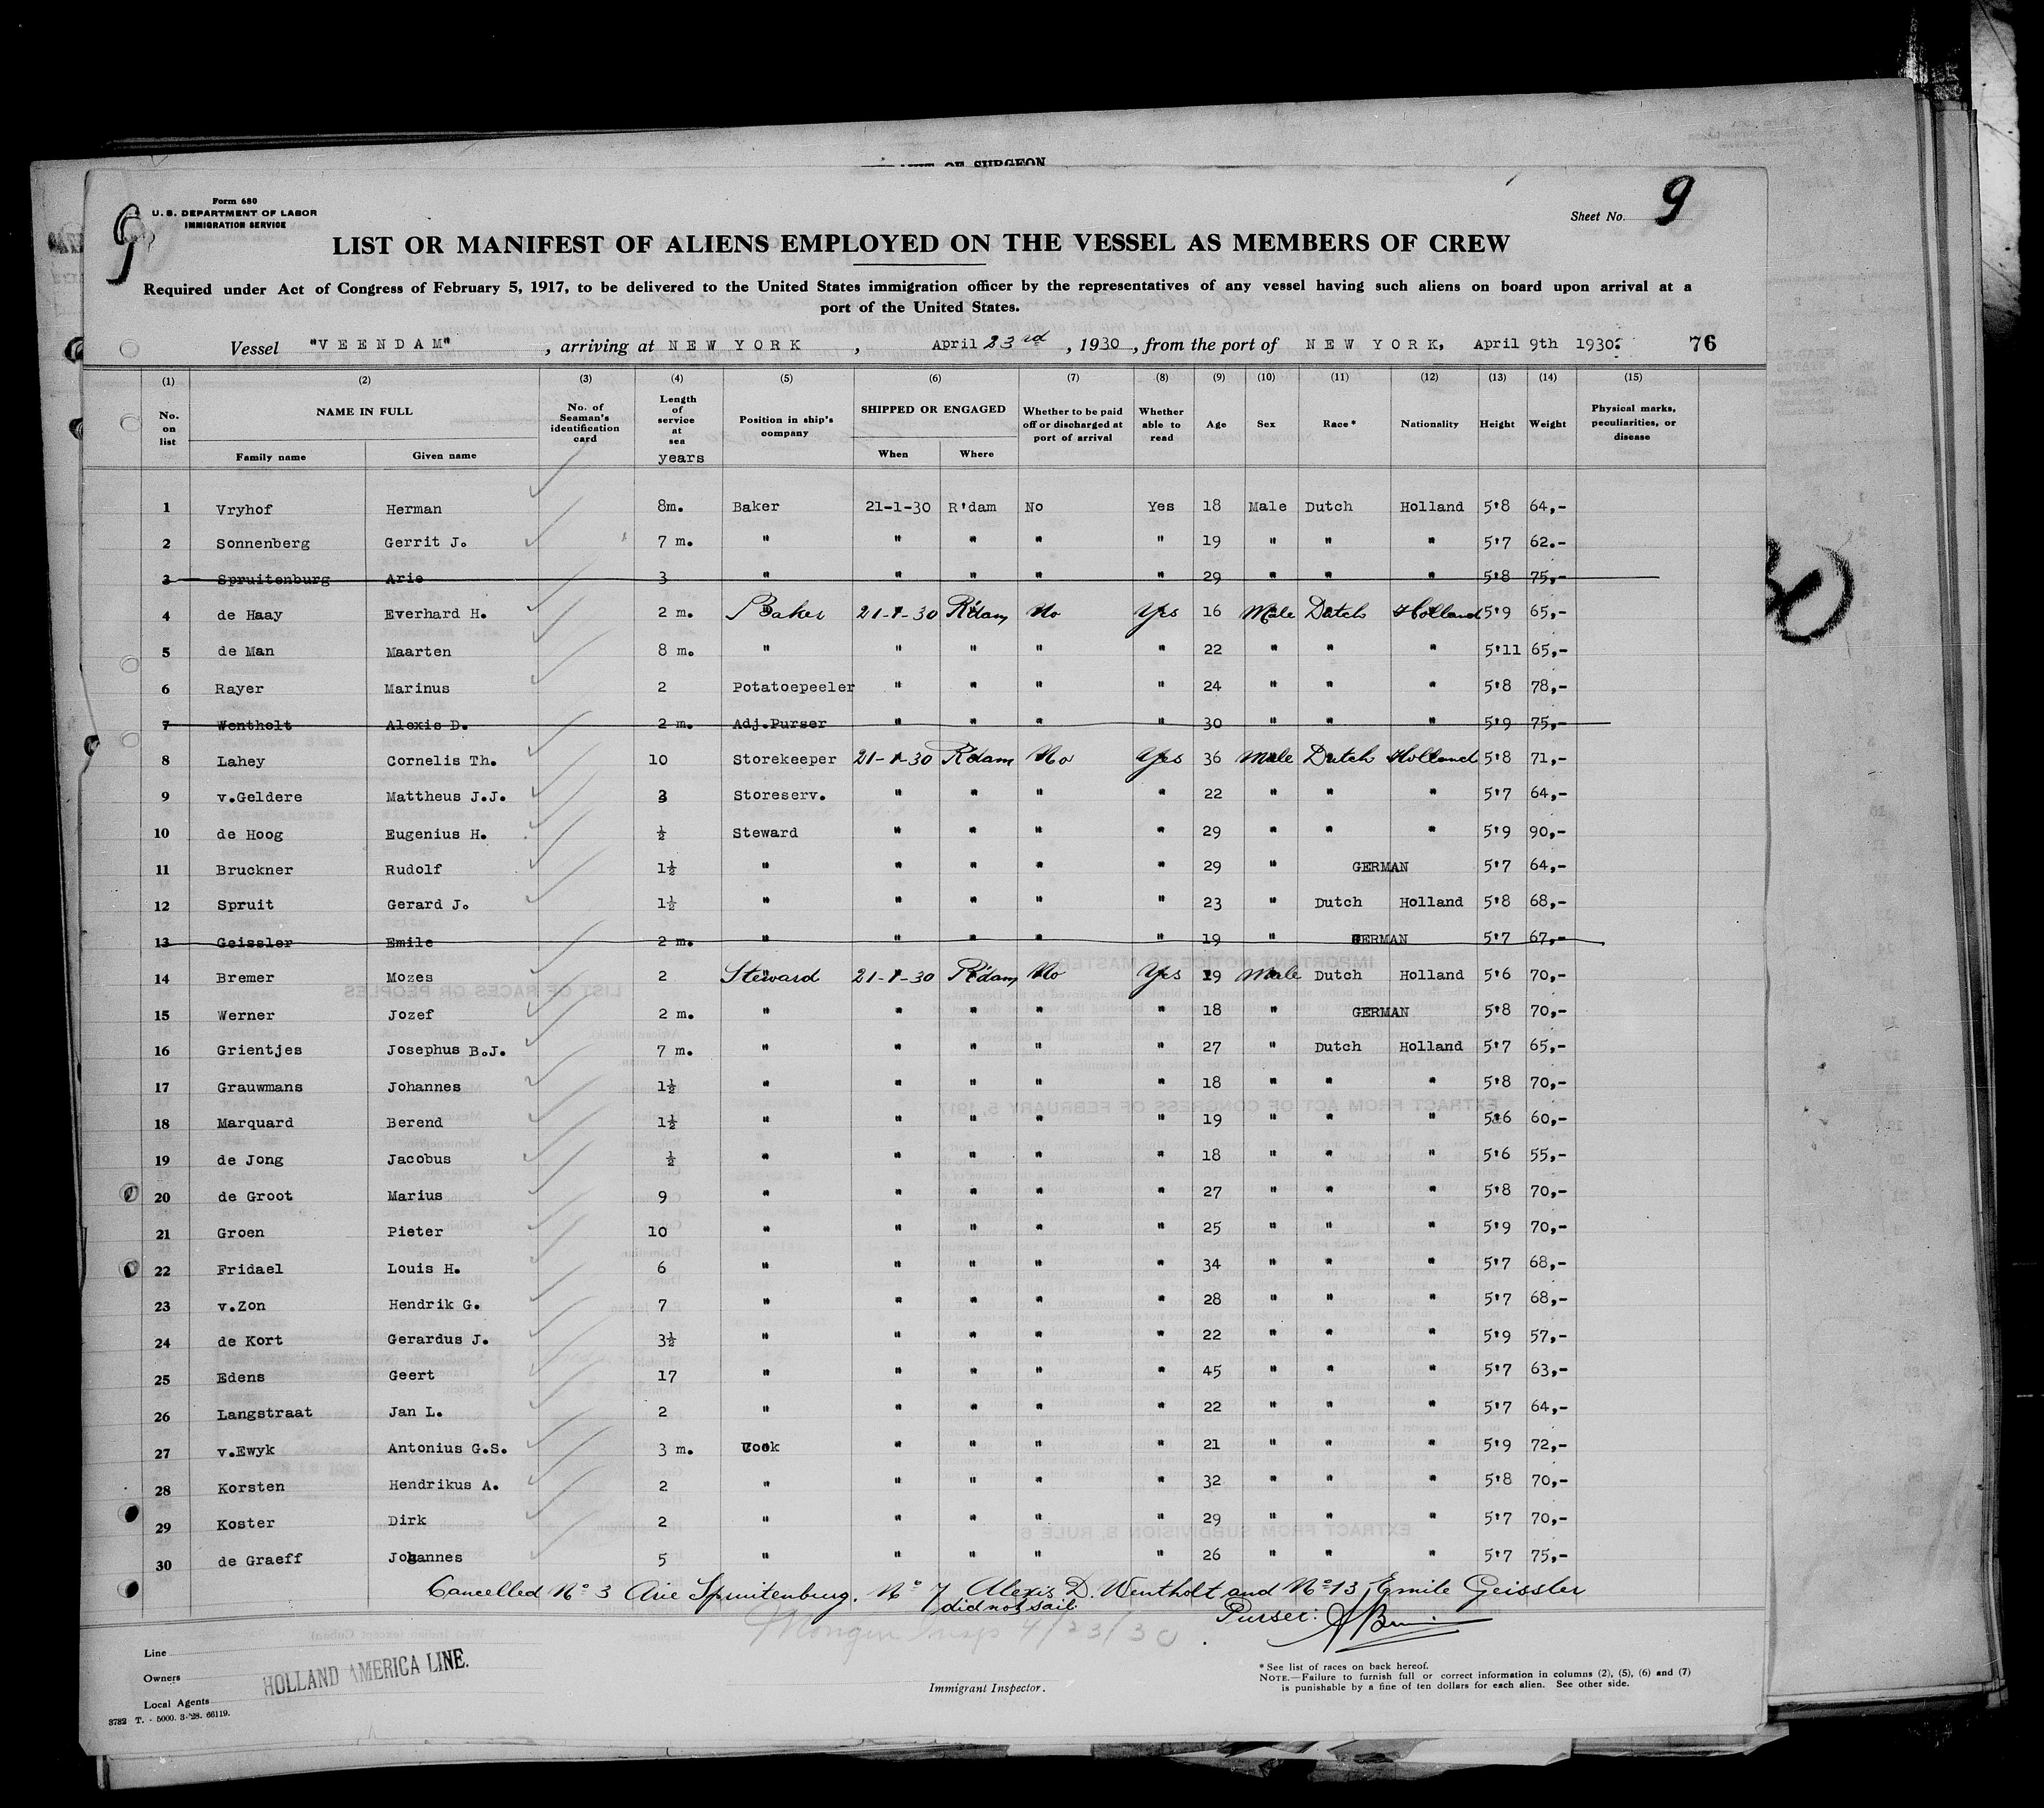 OF SURGEON
Form 680
U. S. DEPARTMENT OF LABOR
IMMIGRATION SERVICE
9
Sheet No. 9
LIST OR MANIFEST OF ALIENS EMPLOYED ON THE VESSEL AS MEMBERS OF CREW
Required under Act of Congress of February 5, 1917, to be delivered to the United States immigration officer by the representatives of any vessel having such aliens on board upon arrival at a
port of the United States.
Vessel "VEENDAM", arriving at NEW YORK, April 23rd, 1930, from the port of NEW YORK, April 9th 1930. 76
(1) (2) (3) (4) (5) (6) (7) (8) (9) (10) (11) (12) (13) (14) (15)
No. on list NAME IN FULL Family name Given name No. of Seaman's identification card Length of service at sea years Position in ship's company SHIPPED OR ENGAGED When Where Whether to be paid off or discharged at port of arrival Whether able to read Age Sex Race* Nationality Height Weight Physical marks, peculiarities, or disease
1 Vryhof Herman 8m. Baker 21-1-30 R'dam No Yes 18 Male Dutch Holland 5'8 64,-
2 Sonnenberg Gerrit J. 7 m. " " " " " 19 " " " 5'7 62.-
3 Spruitenburg Arie 3 " " " " " 29 " " " 5'8 75,-
4 de Haay Everhard H. 2 m. Baker 21-1-30 R'dam No Yes 16 Male Dutch Holland 5'9 65,-
5 de Man Maarten 8 m. " " " " " 22 " " " 5'11 65,-
6 Rayer Marinus 2 Potatoepeeler " " " " 24 " " " 5'8 78,-
7 Wentholt Alexis D. 2 m. Adj.Purser " " " " 30 " " " 5'9 75,-
8 Lahey Cornelis Th. 10 Storekeeper 21-1-30 R'dam No Yes 36 Male Dutch Holland 5'8 71,-
9 v.Geldere Mattheus J.J. 3 Storeserv. " " " " 22 " " " 5'7 64,-
10 de Hoog Eugenius H. ½ Steward " " " " 29 " " " 5'9 90,-
11 Bruckner Rudolf 1½ " " " " " 29 " GERMAN 5'7 64,-
12 Spruit Gerard J. 1½ " " " " " 23 " Dutch Holland 5'8 68,-
13 Geissler Emile 2 m. " " " " " 19 " GERMAN 5'7 67,-
14 Bremer Mozes 2 Steward 21-1-30 R'dam No Yes 19 Male Dutch Holland 5'6 70,-
15 Werner Jozef 2 m. " " " " " 18 " GERMAN 5'8 70,-
16 Grientjes Josephus B.J. 7 m. " " " " " 27 " Dutch Holland 5'7 65,-
17 Grauwmans Johannes 1½ " " " " " 18 " " " 5'8 70,-
18 Marquard Berend 1½ " " " " " 19 " " " 5'6 60,-
19 de Jong Jacobus ½ " " " " " 18 " " " 5'6 55,-
20 de Groot Marius 9 " " " " " 27 " " " 5'8 70,-
21 Groen Pieter 10 " " " " " 25 " " " 5'9 70,-
22 Fridael Louis H. 6 " " " " " 34 " " " 5'7 68,-
23 v.Zon Hendrik G. 7 " " " " " 28 " " " 5'7 68,-
24 de Kort Gerardus J. 3½ " " " " " 22 " " " 5'9 57,-
25 Edens Geert 17 " " " " " 45 " " " 5'7 63,-
26 Langstraat Jan L. 2 " " " " " 22 " " " 5'7 64,-
27 v.Ewyk Antonius G.S. 3 m. Cook " " " " 21 " " " 5'9 72,-
28 Korsten Hendrikus A. 2 " " " " " 32 " " " 5'8 70,-
29 Koster Dirk 2 " " " " " 29 " " " 5'7 70,-
30 de Graeff Johannes 5 " " " " " 26 " " " 5'7 75,-
Cancelled No 3 Arie Spruitenburg. No 7 Alexis D. Wentholt and No 13 Emile Geissler
did not sail.
Purser:
Insp 4/23/30
Line
Owners
Local Agents
HOLLAND AMERICA LINE.
Immigrant Inspector.
* See list of races on back hereof.
NOTE.—Failure to furnish full or correct information in columns (2), (5), (6) and (7)
is punishable by a fine of ten dollars for each alien. See other side.
3782 T. - 5000. 3-'28. 66119.